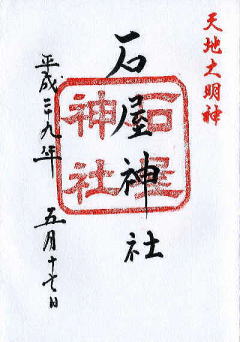 天地大明神
石屋神社
石屋神社
平成二九年 五月十七日